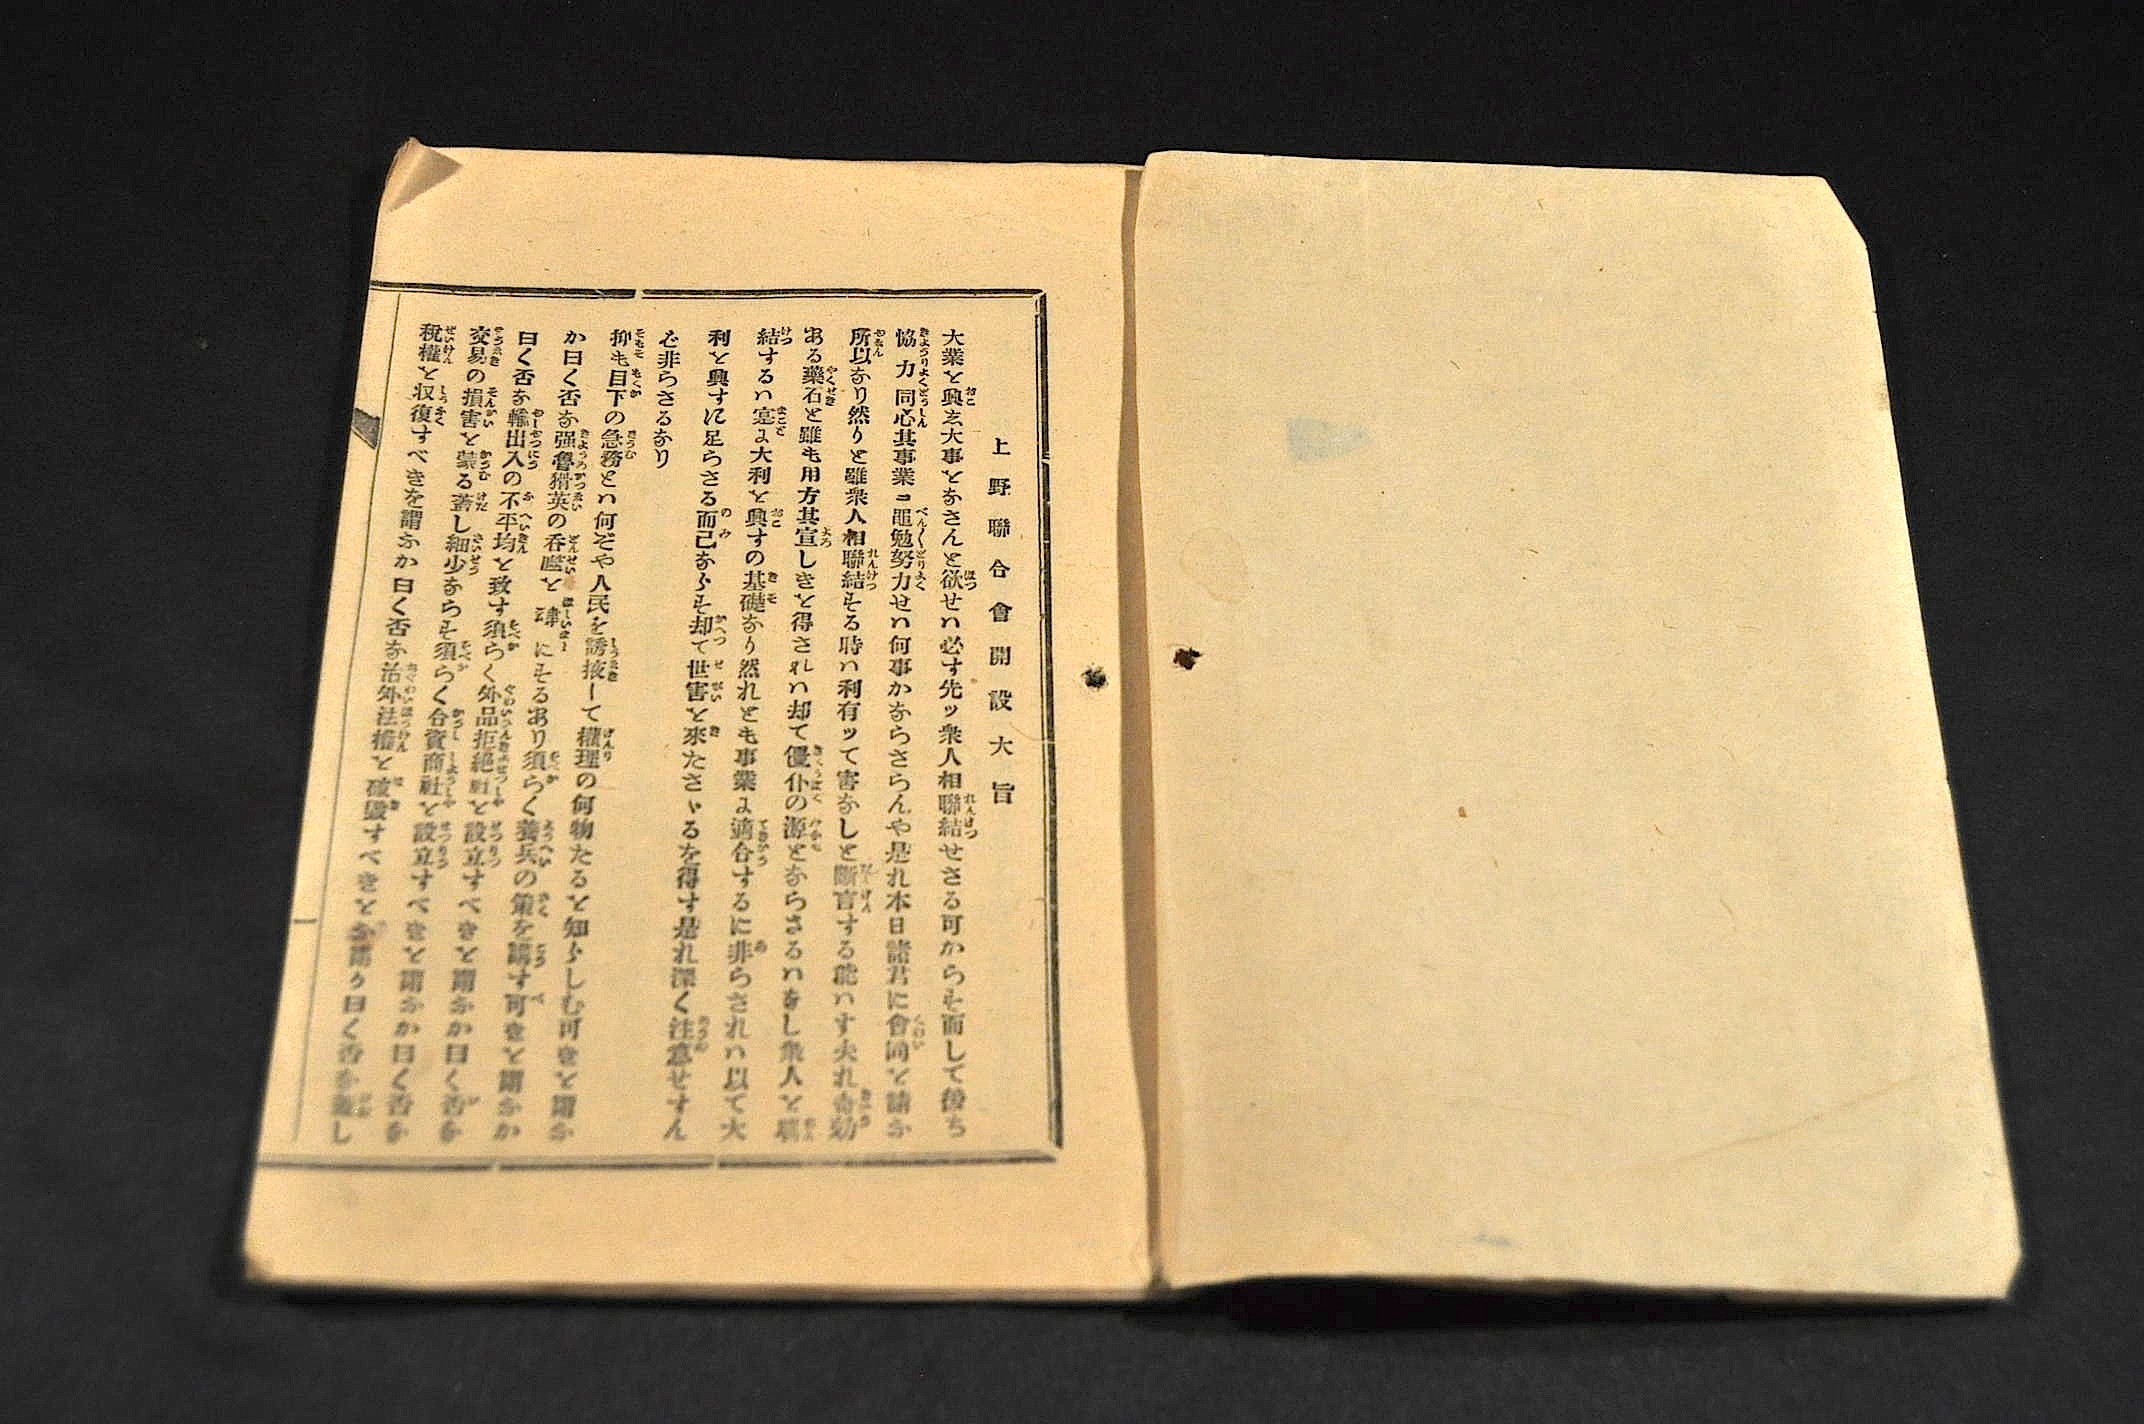 上野聯合會開設大旨
大業を興し大事をなさんと欲せハ必す先ッ衆人相聯結せさる可からす而して後ち
協力同心其事業ニ黽勉努力せハ何事かならさらんや是れ本日諸君に會同を請ふ
所以なり然りと雖衆人相聯結する時ハ利有ッて害なしと斷言する能ハす夫れ奇効
ある藥石と雖も用方其宣しきを得されハ却て僵仆の源とならさるハなし衆人を
結するハ寔に大利を興すの基礎なり然れとも事業に適合するに非らされハ以て大
利を興すに足らさる而已ならす却て世害を來たさゝるを得す是れ深く注意せすん
は非らさるなり
抑も目下の急務とハ何ぞや人民を誘掖して權理の何物たるを知らしむ可きを謂ふ
か曰く否な强魯猾英の呑噬を肆にするあり須らく養兵の策を講す可きを謂ふか
曰く否な輸出入の不平均を致す須らく外品拒絶社を設立すべきを謂ふか曰く否な
交易の損害を蒙る蓋し細少ならす須らく合資商社を設立すべきを謂ふか曰く否な
稅權を収復すべきを謂ふか曰く否な治外法權を破毀すべきを謂ふ歟曰く否な
一